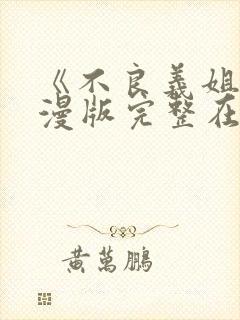 《不良義姐
漫版完整在
黃萬鵬